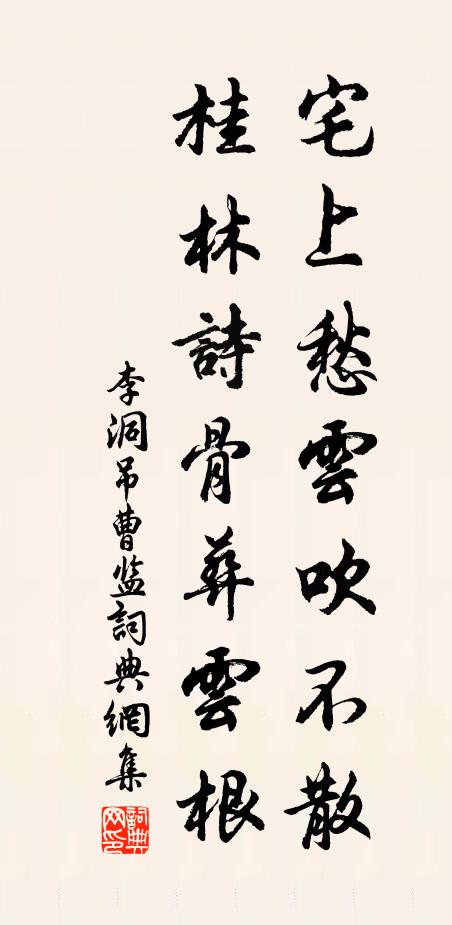 宅上愁雲吹不散
桂林詩骨葬雲根
李洞吊曹監詞典網集
詞典網印